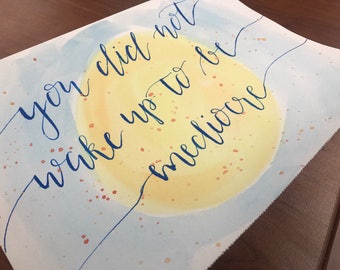 you did not
wake up to be
mediocre